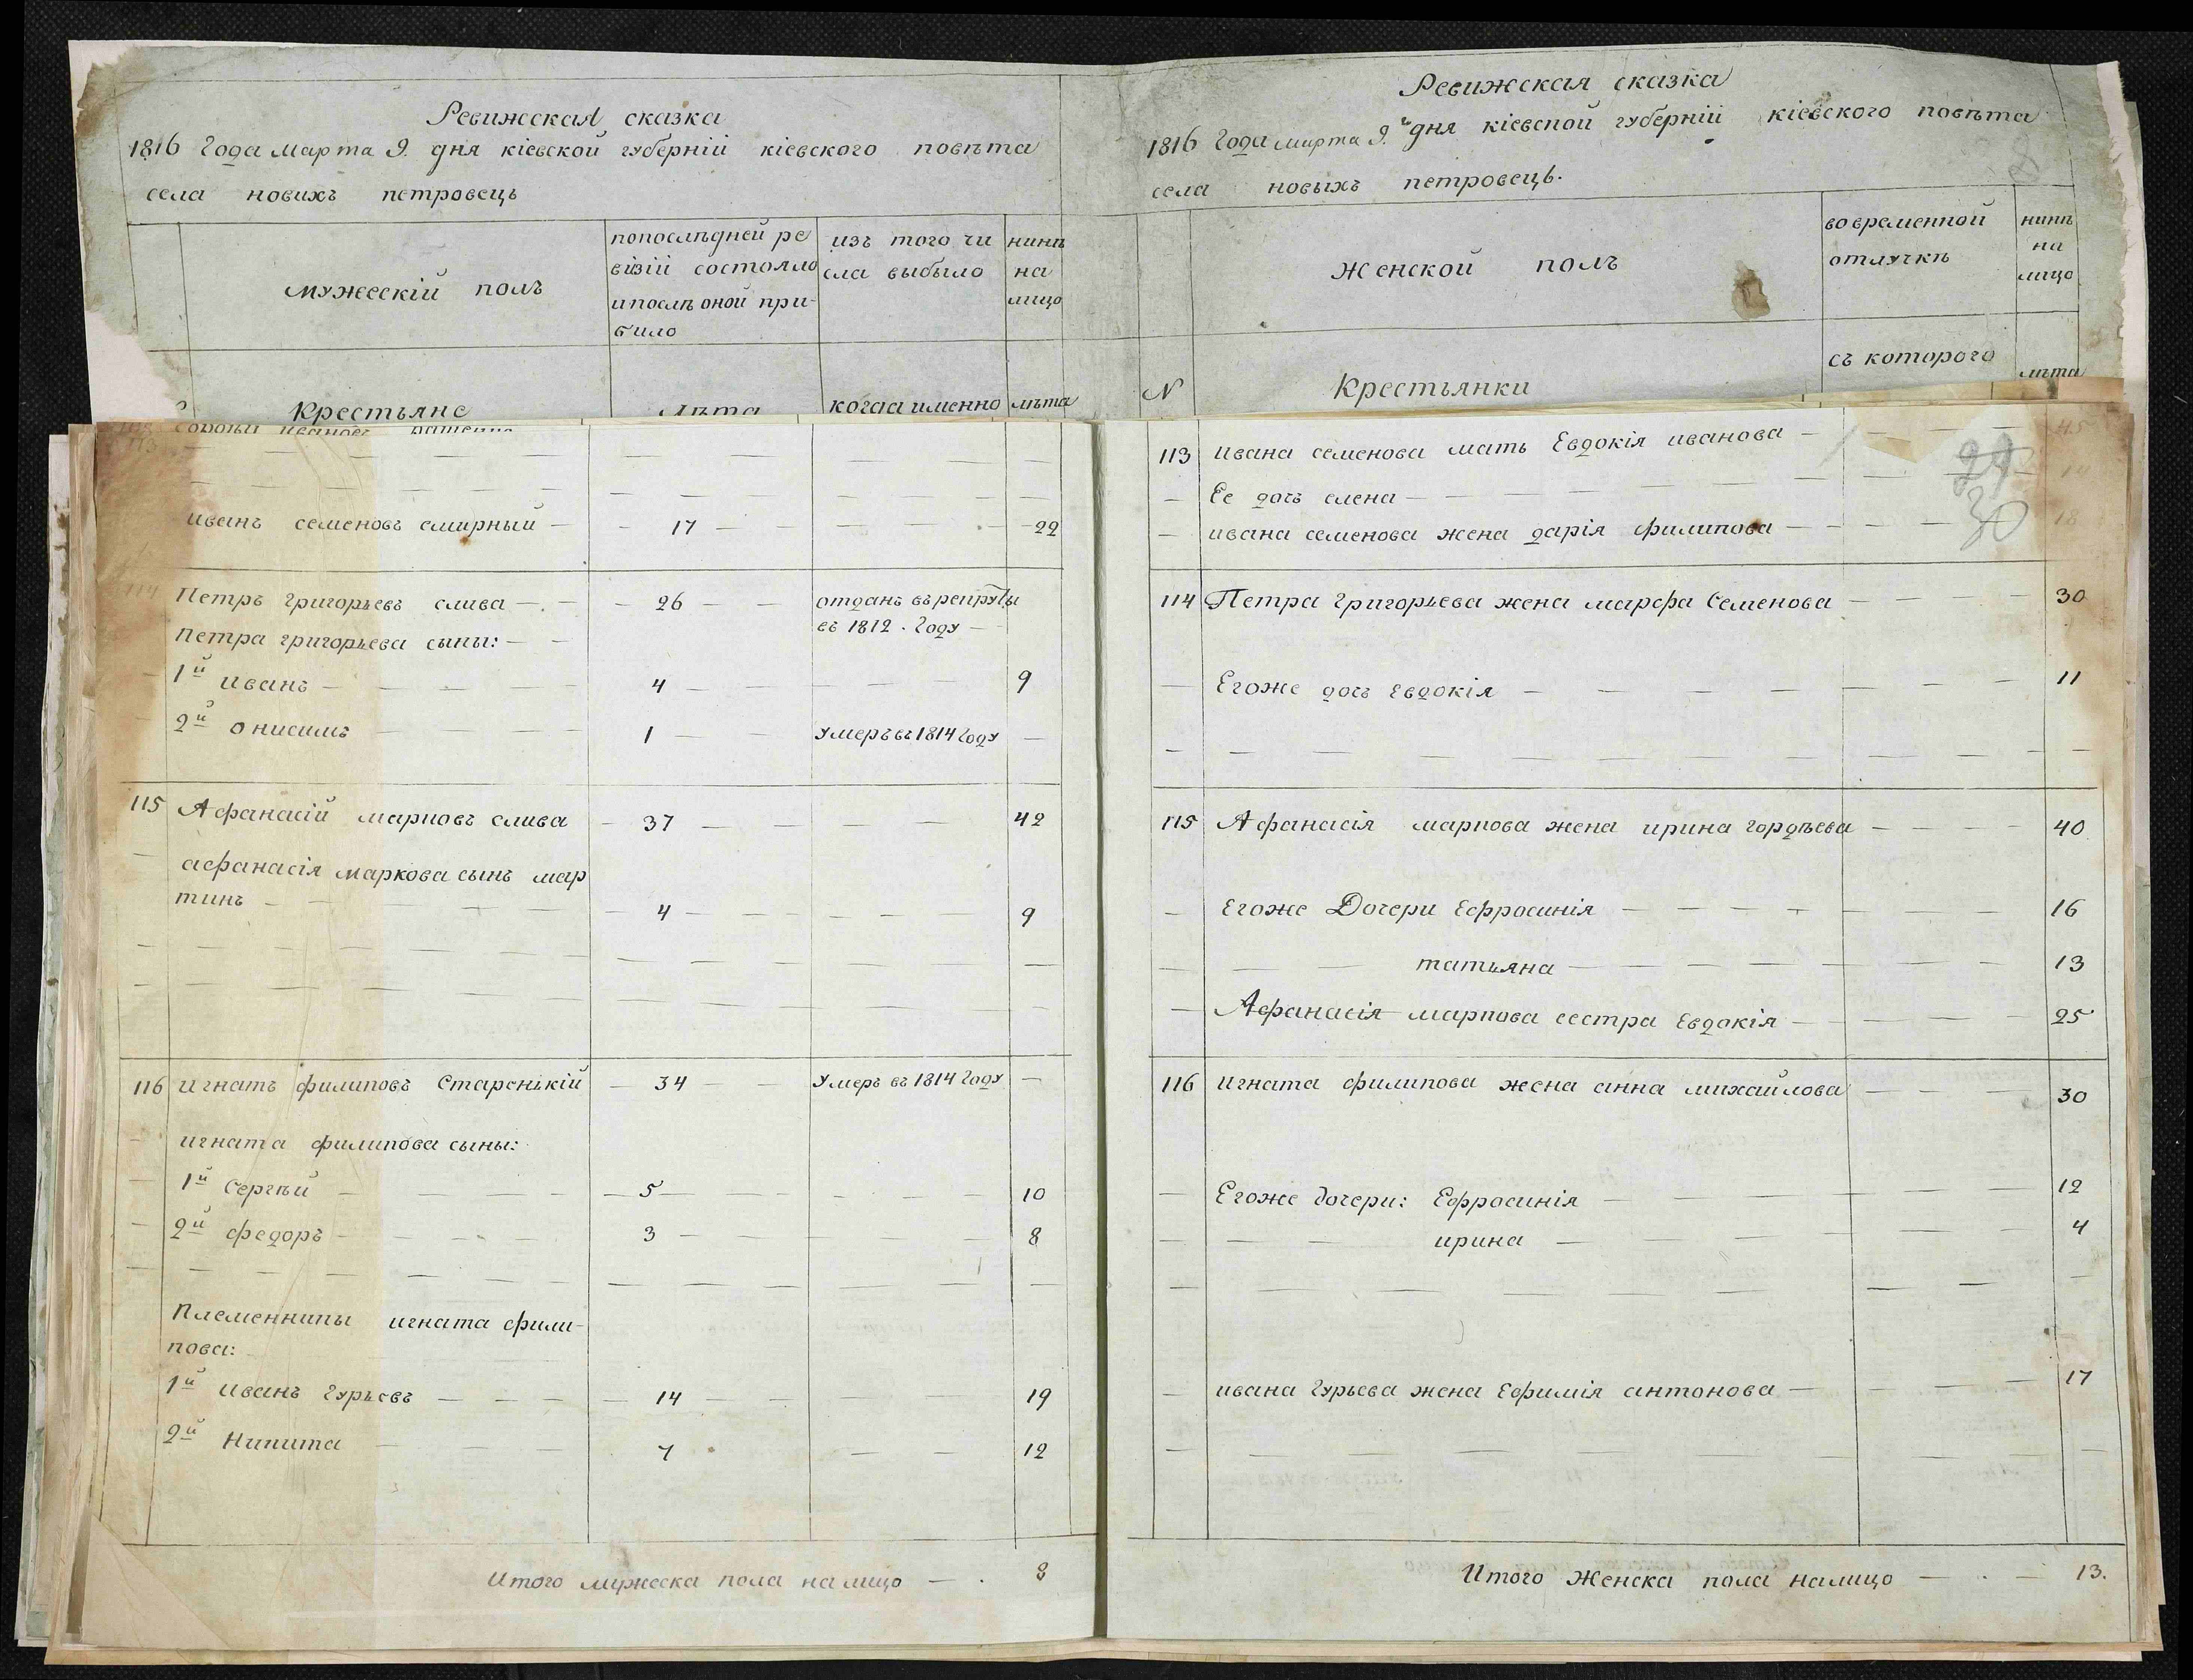 Ревижская сказка
1816 Года марта 9. дня кіевской губерніи кіевского повѣта
села новихъ петровець
мужескій полъ
попослѣдней ре
візіи состояло
ипослѣ оной при-
било
изъ того чи
сла выбыло
нинѣ
на
лицо
Крестьяне
Лѣта
когда именно
лѣта
иванъ семеновъ смирный — 17 — 22
114 Петръ григорьевъ слива — 26 — отданъ върекруты
въ 1812. Году
Петра григорьева сыны:
1й иванъ — 4 — 9
2й онисимъ — 1 — умеръ въ 1814 Году —
115 Афанасій марковъ слива — 37 — 42
афанасія маркова сынъ мар
тинъ — 4 — 9
116 игнатъ филиповъ Старенькій — 34 — умеръ въ 1814 Году —
игната филипова сыны:
1й Сергѣй — 5 — 10
2й федоръ — 3 — 8
Племенники игната фили-
пова:
1й иванъ гурьевъ — 14 — 19
2й Никита — 7 — 12
Итого мужеска пола налицо — 8
Ревижская сказка
1816 Года марта 9.й дня кіевской губерніи кіевского повѣта
села новыхъ петровець.
Женской полъ
вовременной
отлучкѣ
нинѣ
на
лицо
N
Крестьянки
съ которого
лѣта
29
30
113 ивана семенова мать Евдокія иванова — 45
— Ее дочь елена —
— ивана семенова жена дарія филипова — 18
114 Петра григорьева жена марфа Семенова — 30
— Егоже дочь Евдокія — 11
115 Афанасія маркова жена ирина гордѣева — 40
— Егоже Дочери Ефросинія — 16
— татьяна — 13
— Афанасія маркова сестра Евдокія — 25
116 игната филипова жена анна михайлова — 30
— Егоже дочери: Ефросинія — 12
— ирина — 4
— ивана гурьева жена Ефимія антонова — 17
Итого Женска пола налицо — 13.